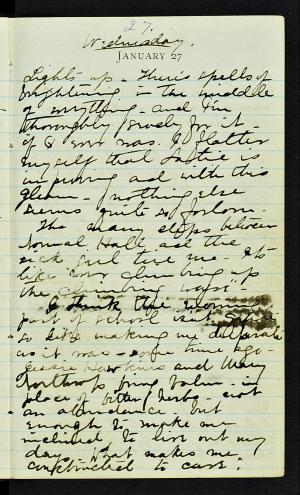 27.
Wednesday.
JANUARY 27
Lights up - There's spells of
brightening in the middle
of everything - and I'm
thoroughly for it -
if I ever was. I flatter
myself that Lottie is
improving and with this
gleam - nothing else
seems quite so forlorn.
The many steps between
Normal Hall and the
sick girl tire me - It's
like "ever climbing up
the climbing wave"
I think the
part of school isn't
so like making me desperate
as it was - some time ago -
Jessie Hawkins and Mary
Northrop bring balm - in
place of bitter herbs - not
an abundance but
enough to make me
inclined to live out my
days - What makes me
constructed to care?